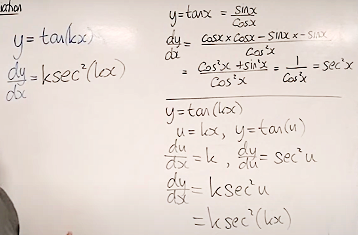 y = tan(kx)
dy/dx = k sec²(kx)
y = tanx = sinx/cosx
dy/dx = (cosx × cosx − sinx × −sinx)/cos²x
= (cos²x + sin²x)/cos²x = 1/cos²x = sec²x
y = tan(kx)
u = kx, y = tan(u)
du/dx = k, dy/du = sec²u
dy/dx = k sec²u
= k sec²(kx)